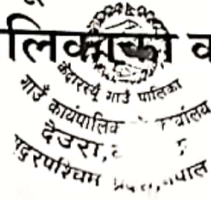 लिकाको व
केदारस्यूँ गाउँ पालिका
गाउँ कार्यपालिक र्यालय
देउरा,
सुदुरपश्चिम प्रदेश, नेपाल